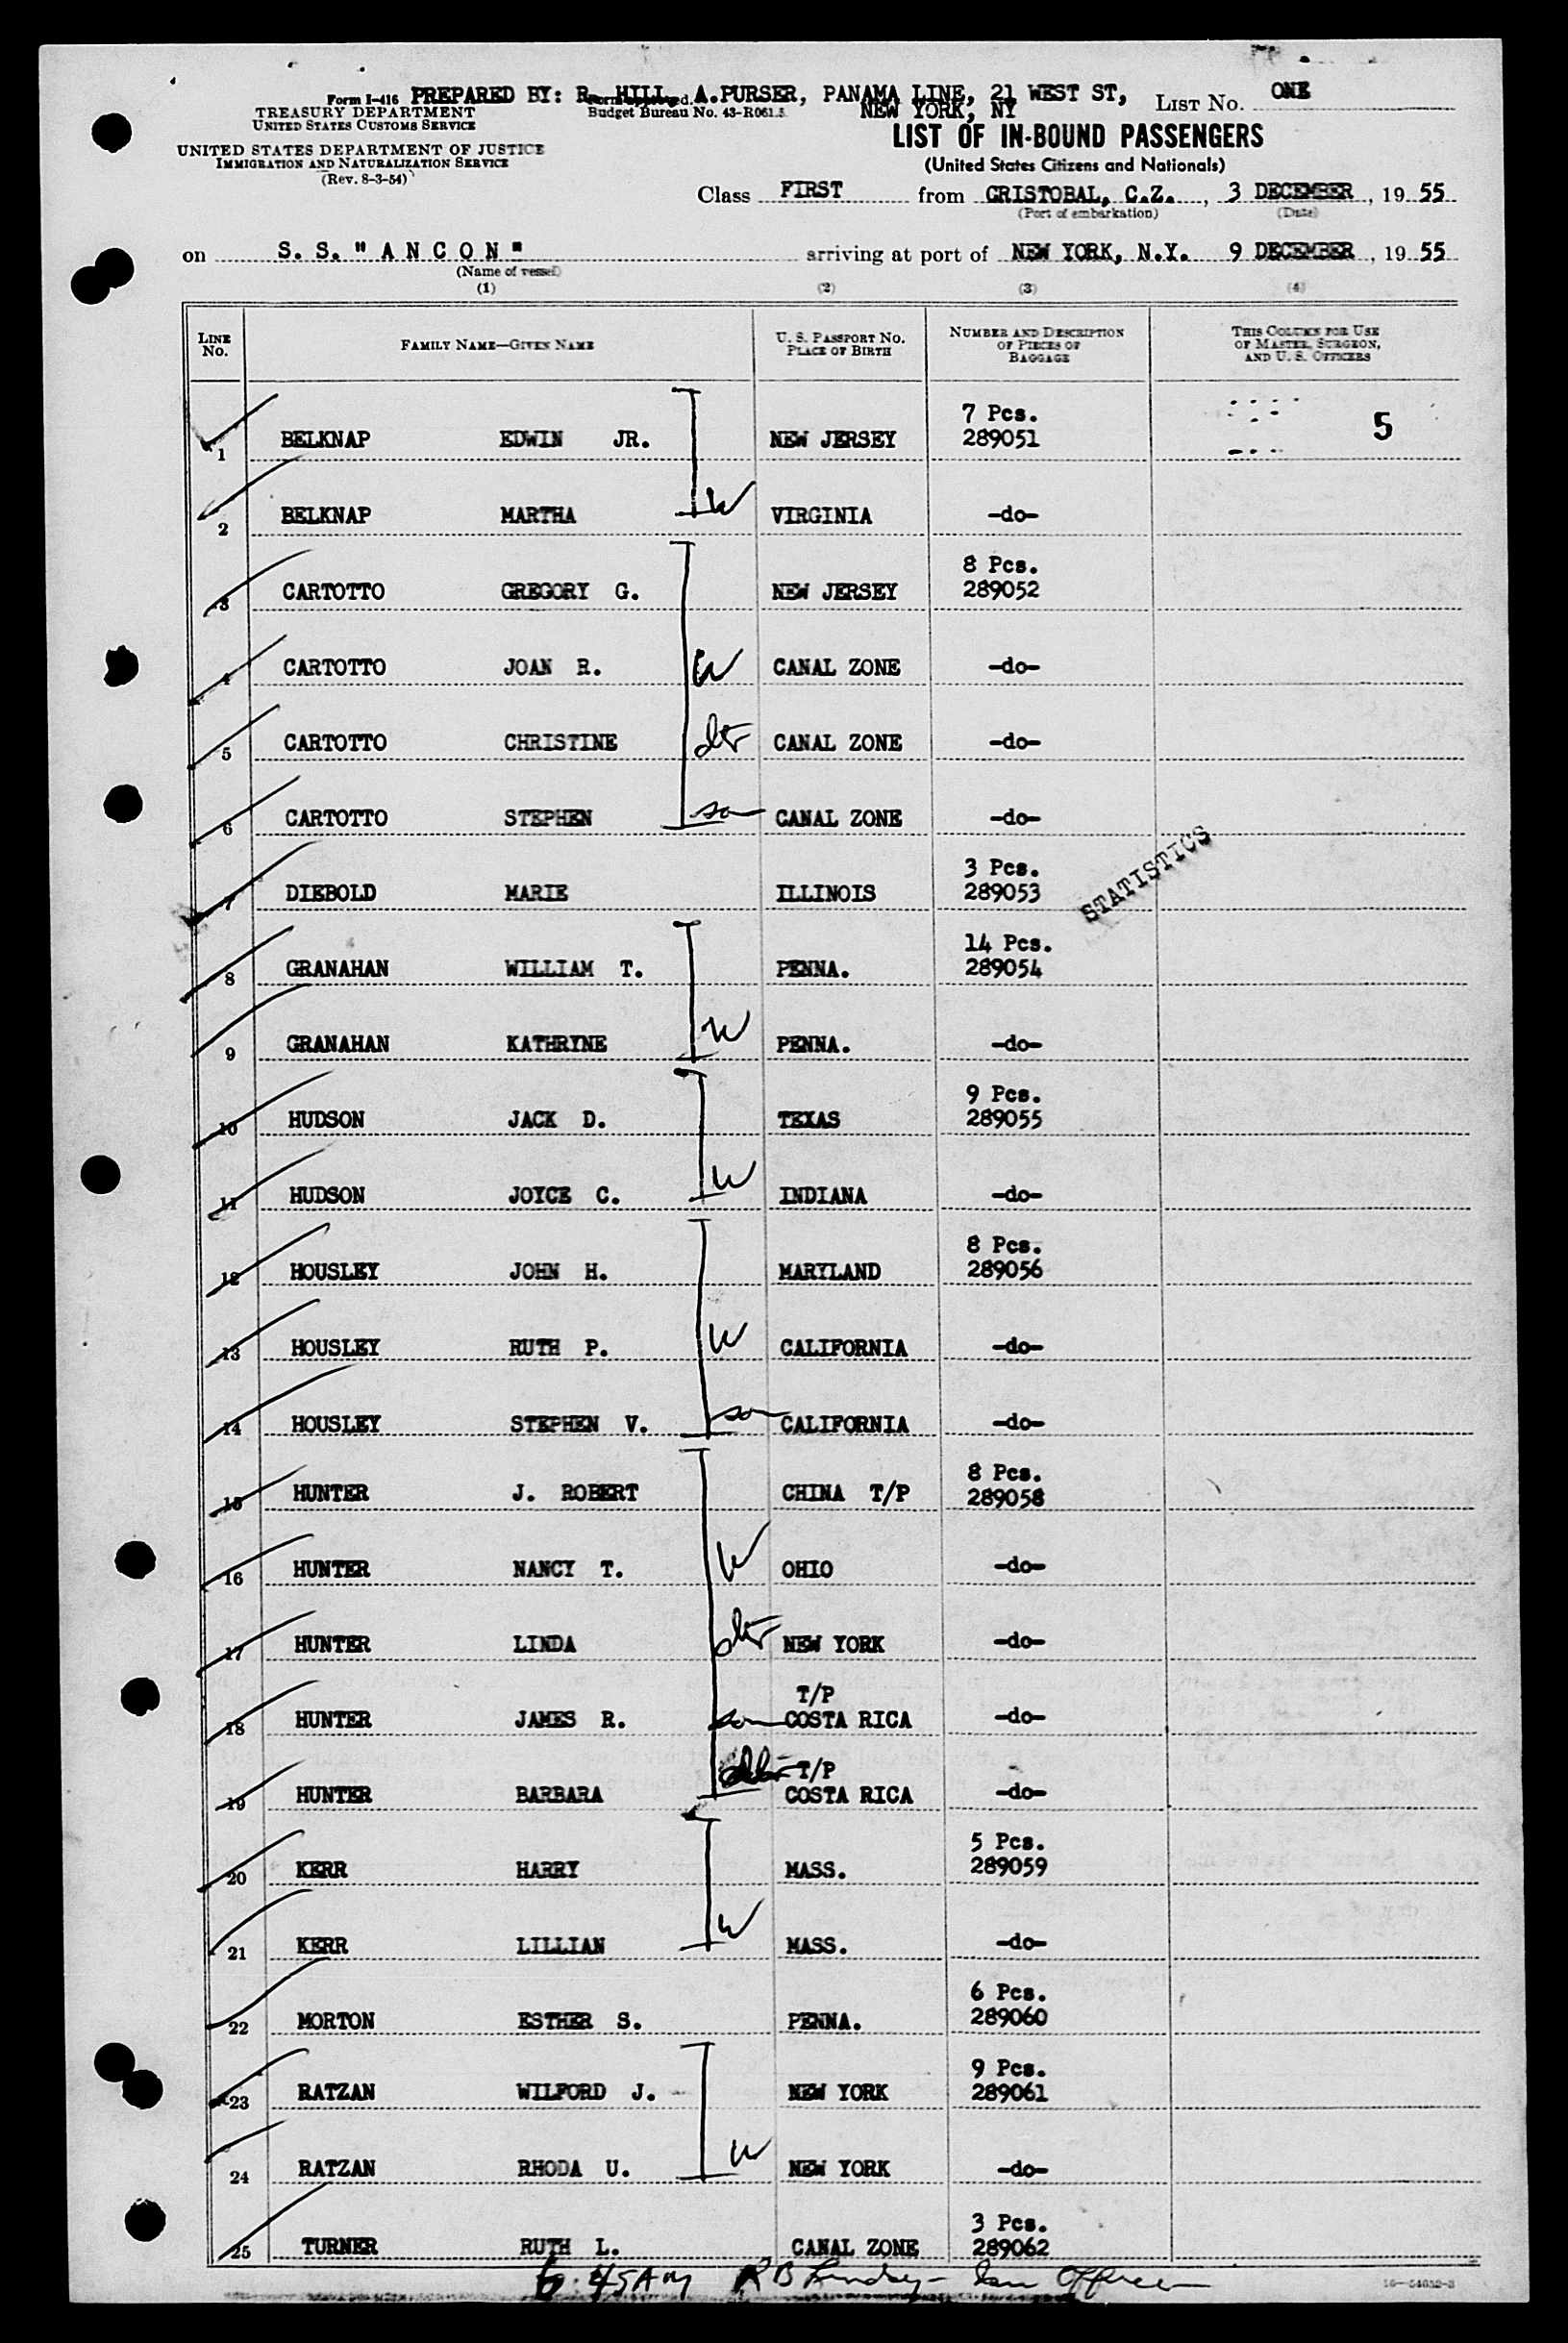 Form I-416 PREPARED BY: R. HILL A.PURSER, PANAMA LINE, 21 WEST ST, LIST NO. ONE
TREASURY DEPARTMENT Budget Bureau No. 43-R061.5 NEW YORK, NY
UNITED STATES CUSTOMS SERVICE
LIST OF IN-BOUND PASSENGERS
UNITED STATES DEPARTMENT OF JUSTICE
IMMIGRATION AND NATURALIZATION SERVICE
(United States Citizens and Nationals)
(Rev. 8-3-54)
Class FIRST from CRISTOBAL, C.Z., 3 DECEMBER, 19 55
(Port of embarkation) (Date)
on S. S. " A N C O N " arriving at port of NEW YORK, N.Y. 9 DECEMBER, 19 55
(Name of vessel)
(1) (2) (3) (4)
LINE NO. FAMILY NAME—GIVEN NAME U. S. PASSPORT NO. PLACE OF BIRTH NUMBER AND DESCRIPTION OF PIECES OF BAGGAGE THIS COLUMN FOR USE OF MASTER, SURGEON, AND U. S. OFFICERS
7 Pcs.
1 BELKNAP EDWIN JR. NEW JERSEY 289051 5
2 BELKNAP MARTHA W VIRGINIA -do-
8 Pcs.
3 CARTOTTO GREGORY G. NEW JERSEY 289052
4 CARTOTTO JOAN R. W CANAL ZONE -do-
5 CARTOTTO CHRISTINE dtr CANAL ZONE -do-
6 CARTOTTO STEPHEN son CANAL ZONE -do-
3 Pcs.
7 DIEBOLD MARIE ILLINOIS 289053 STATISTICS
14 Pcs.
8 GRANAHAN WILLIAM T. PENNA. 289054
9 GRANAHAN KATHRYNE W PENNA. -do-
9 Pcs.
10 HUDSON JACK D. TEXAS 289055
11 HUDSON JOYCE C. W INDIANA -do-
8 Pcs.
12 HOUSLEY JOHN H. MARYLAND 289056
13 HOUSLEY RUTH P. W CALIFORNIA -do-
14 HOUSLEY STEPHEN V. son CALIFORNIA -do-
8 Pcs.
15 HUNTER J. ROBERT CHINA T/P 289058
16 HUNTER NANCY T. W OHIO -do-
17 HUNTER LINDA dtr NEW YORK -do-
T/P
18 HUNTER JAMES R. son COSTA RICA -do-
T/P
19 HUNTER BARBARA dtr COSTA RICA -do-
5 Pcs.
20 KERR HARRY MASS. 289059
21 KERR LILLIAN W MASS. -do-
6 Pcs.
22 MORTON ESTHER S. PENNA. 289060
9 Pcs.
23 RATZAN WILFORD J. NEW YORK 289061
24 RATZAN RHODA U. W NEW YORK -do-
3 Pcs.
25 TURNER RUTH L. CANAL ZONE 289062
6:45AM R B Lindsey - Imm Officer